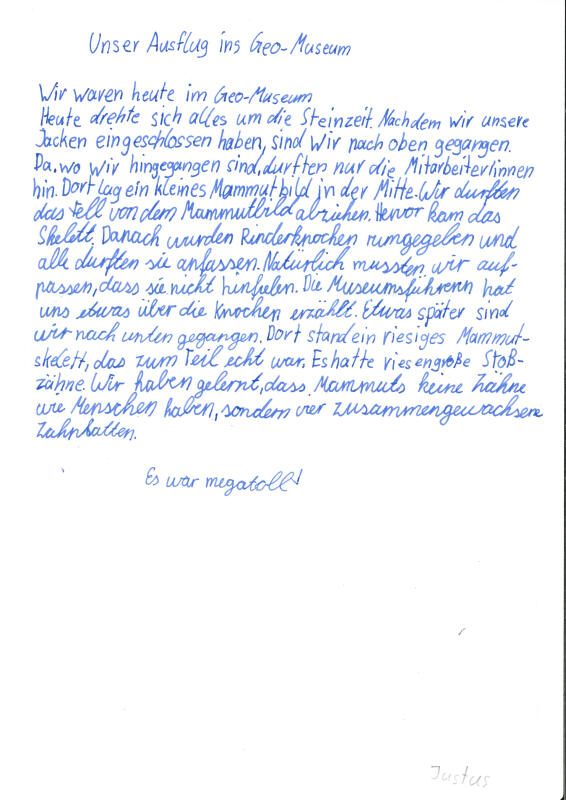 Unser Ausflug ins Geo-Museum
Wir waren heute im Geo-Museum
Heute drehte sich alles um die Steinzeit. Nachdem wir unsere
Jacken eingeschlossen haben, sind wir nach oben gegangen.
Da, wo wir hingegangen sind, durften nur die Mitarbeiter/innen
hin. Dort lag ein kleines Mammutbild in der Mitte. Wir durften
das Fell von dem Mammutbild abziehen. Hervor kam das
Skelett. Danach wurden Rinderknochen rumgegeben und
alle durften sie anfassen. Natürlich mussten wir auf-
passen, dass sie nicht hinfielen. Die Museumsführerin hat
uns etwas über die Knochen erzählt. Etwas später sind
wir nach unten gegangen. Dort stand ein riesiges Mammut-
skelett, das zum Teil echt war. Es hatte riesengroße Stoß-
zähne. Wir haben gelernt, dass Mammuts keine Zähne
wie Menschen haben, sondern vier zusammengewachsene
Zahnplatten.
Es war megatoll!
Justus